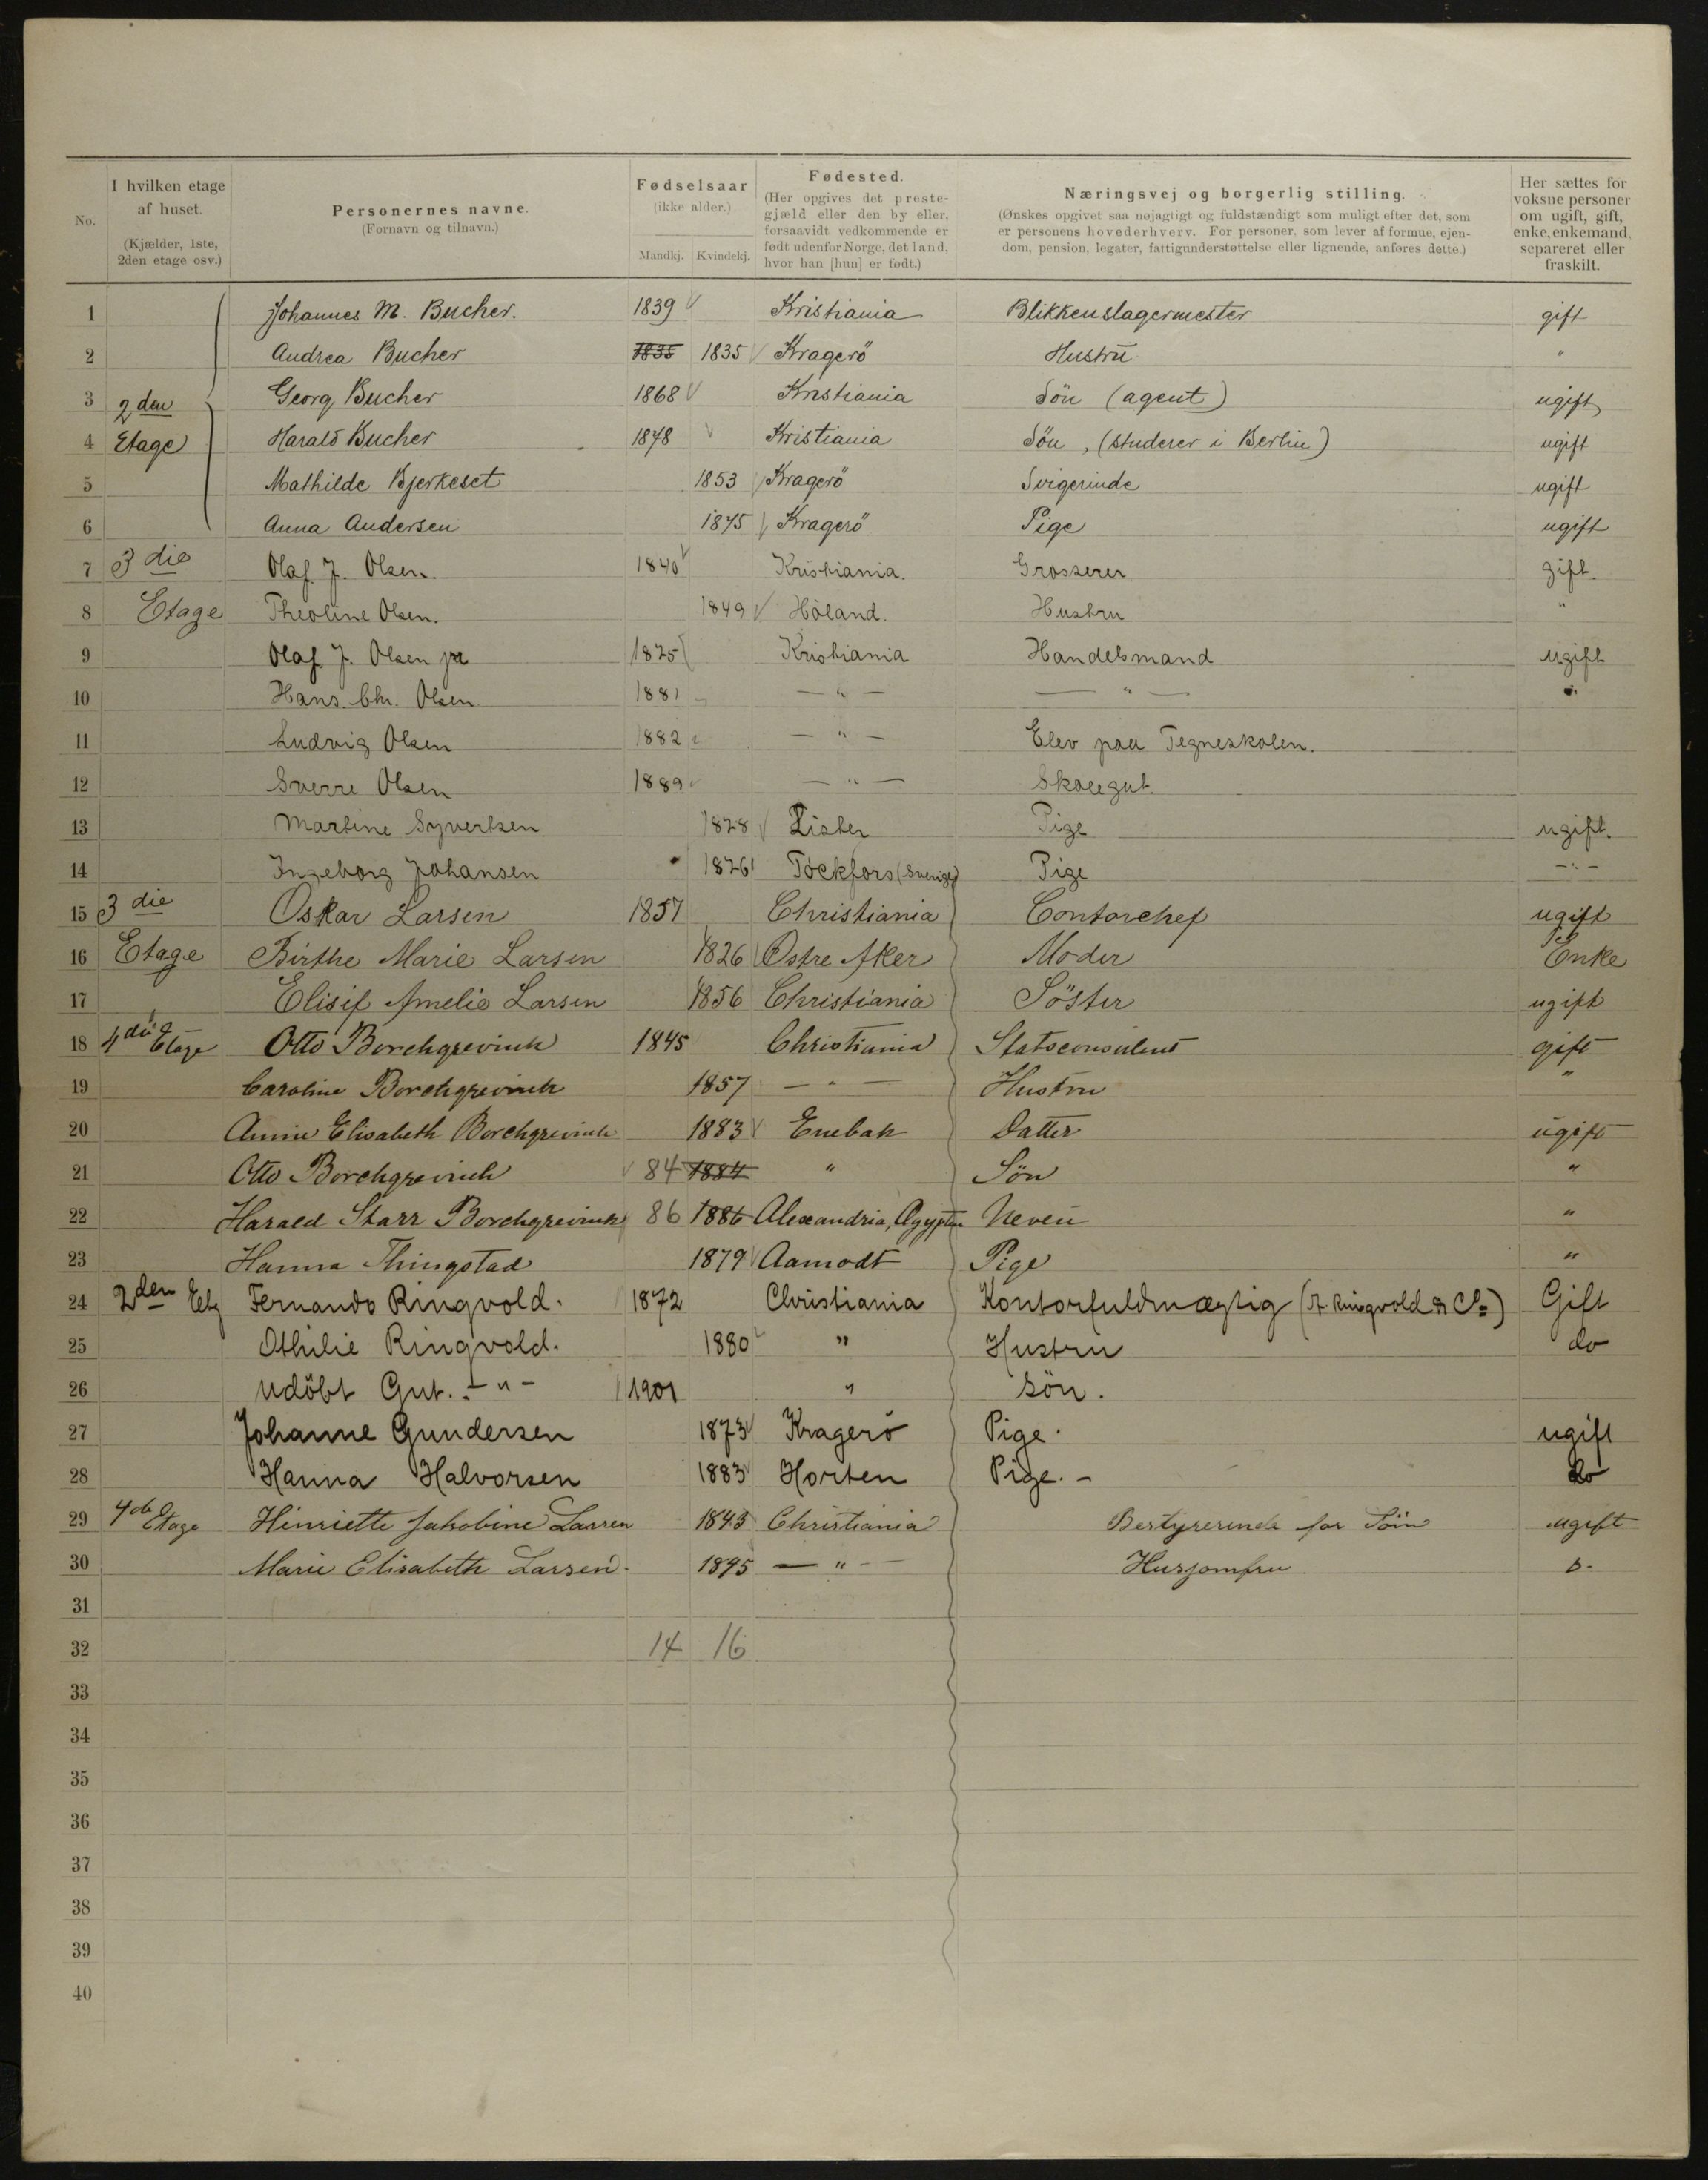 No.
I hvilken etage af huset. (Kjælder, 1ste, 2den etage osv.)
Personernes navne. (Fornavn og tilnavn.)
Fødselsaar (ikke alder.) Mandkj. Kvindekj.
Fødested. (Her opgives det prestegjæld eller den by eller, forsaavidt vedkommende er født udenfor Norge, det land, hvor han [hun] er født.)
Næringsvej og borgerlig stilling. (Ønskes opgivet saa nøjagtigt og fuldstændigt som muligt efter det, som er personens hovederhverv. For personer, som lever af formue, ejendom, pension, legater, fattigunderstøttelse eller lignende, anføres dette.)
Her sættes for voksne personer om ugift, gift, enke, enkemand, separeret eller fraskilt.
1 Johannes M. Bucher. 1839 Kristiania Blikkenslagermester gift
2 Andrea Bucher 1835 1835 Kragerö Hustru "
3 2den Georg Bucher 1868 Kristiania Sön (agent) ugift
4 Etage Harald Bucher 1878 Kristiania Sön, (studerer i Berlin) ugift
5 Mathilde Bjerkeset 1853 Kragerö Svigerinde ugift
6 Anna Andersen 1875 Kragerö Pige ugift
7 3die Olaf J. Olsen. 1840 Kristiania. Grosserer gift.
8 Etage Theoline Olsen. 1849 Höland. Hustru "
9 Olaf J. Olsen jr 1875 Kristiania Handelsmand ugift
10 Hans. Chr. Olsen 1881 — " — — " — "
11 Ludvig Olsen 1882 — " — Elev paa Tegneskolen.
12 Sverre Olsen 1889 — " — Skolegut.
13 Martine Syvertsen 1878 Lister Pige ugift.
14 Ingeborg Johansen 1876 Töckfors (Sverige) Pige — " —
15 3die Oskar Larsen 1857 Christiania Contorchef ugift
16 Etage Birthe Marie Larsen 1826 Østre Aker Moder Enke
17 Elisif Amelie Larsen 1856 Christiania Söster ugift
18 4die Etage Otto Borchgrevink 1845 Christiania Statsconsulent gift
19 Caroline Borchgrevink 1857 — " — Hustru "
20 Annie Elisabeth Borchgrevink 1883 Enebak Datter ugift
21 Otto Borchgrevink 84 1884 " Sön "
22 Harald Starr Borchgrevink 86 1886 Alexandria, Ægypten Neveu "
23 Hanna Thingstad 1879 Aamodt Pige "
24 2den Etg Fernando Ringvold. 1872 Christiania Kontorfuldmægtig (A. Ringvold & Co) Gift
25 Othilie Ringvold. 1880 " Hustru do
26 Udöbt Gut. - " - 1901 " Sön.
27 Johanne Gundersen 1873 Kragerö Pige. ugift
28 Hanna Halvorsen 1883 Horten Pige. - do
29 4de Etage Henriette Jakobine Larsen 1843 Christiania Bestyrerinde for ugift
30 Marie Elisabeth Larsen. 1875 — " — Husjomfru
31
32 14 16
33
34
35
36
37
38
39
40